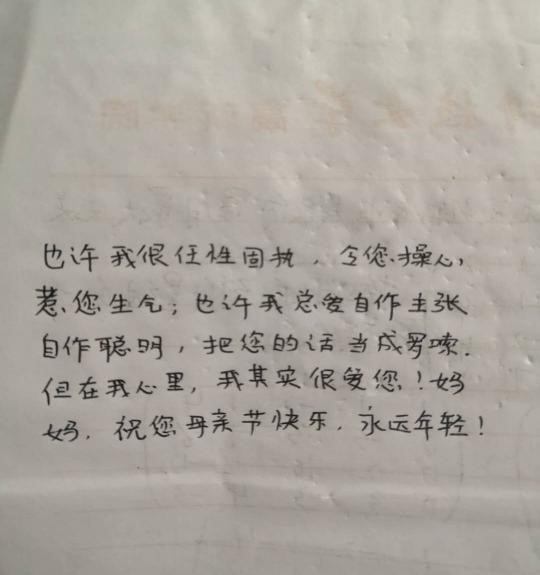 也许我很任性固执，令您操心，
惹您生气；也许我总爱自作主张
自作聪明，把您的话当成罗嗦．
但在我心里，我其实很爱您！妈
妈．祝您母亲节快乐．永远年轻！